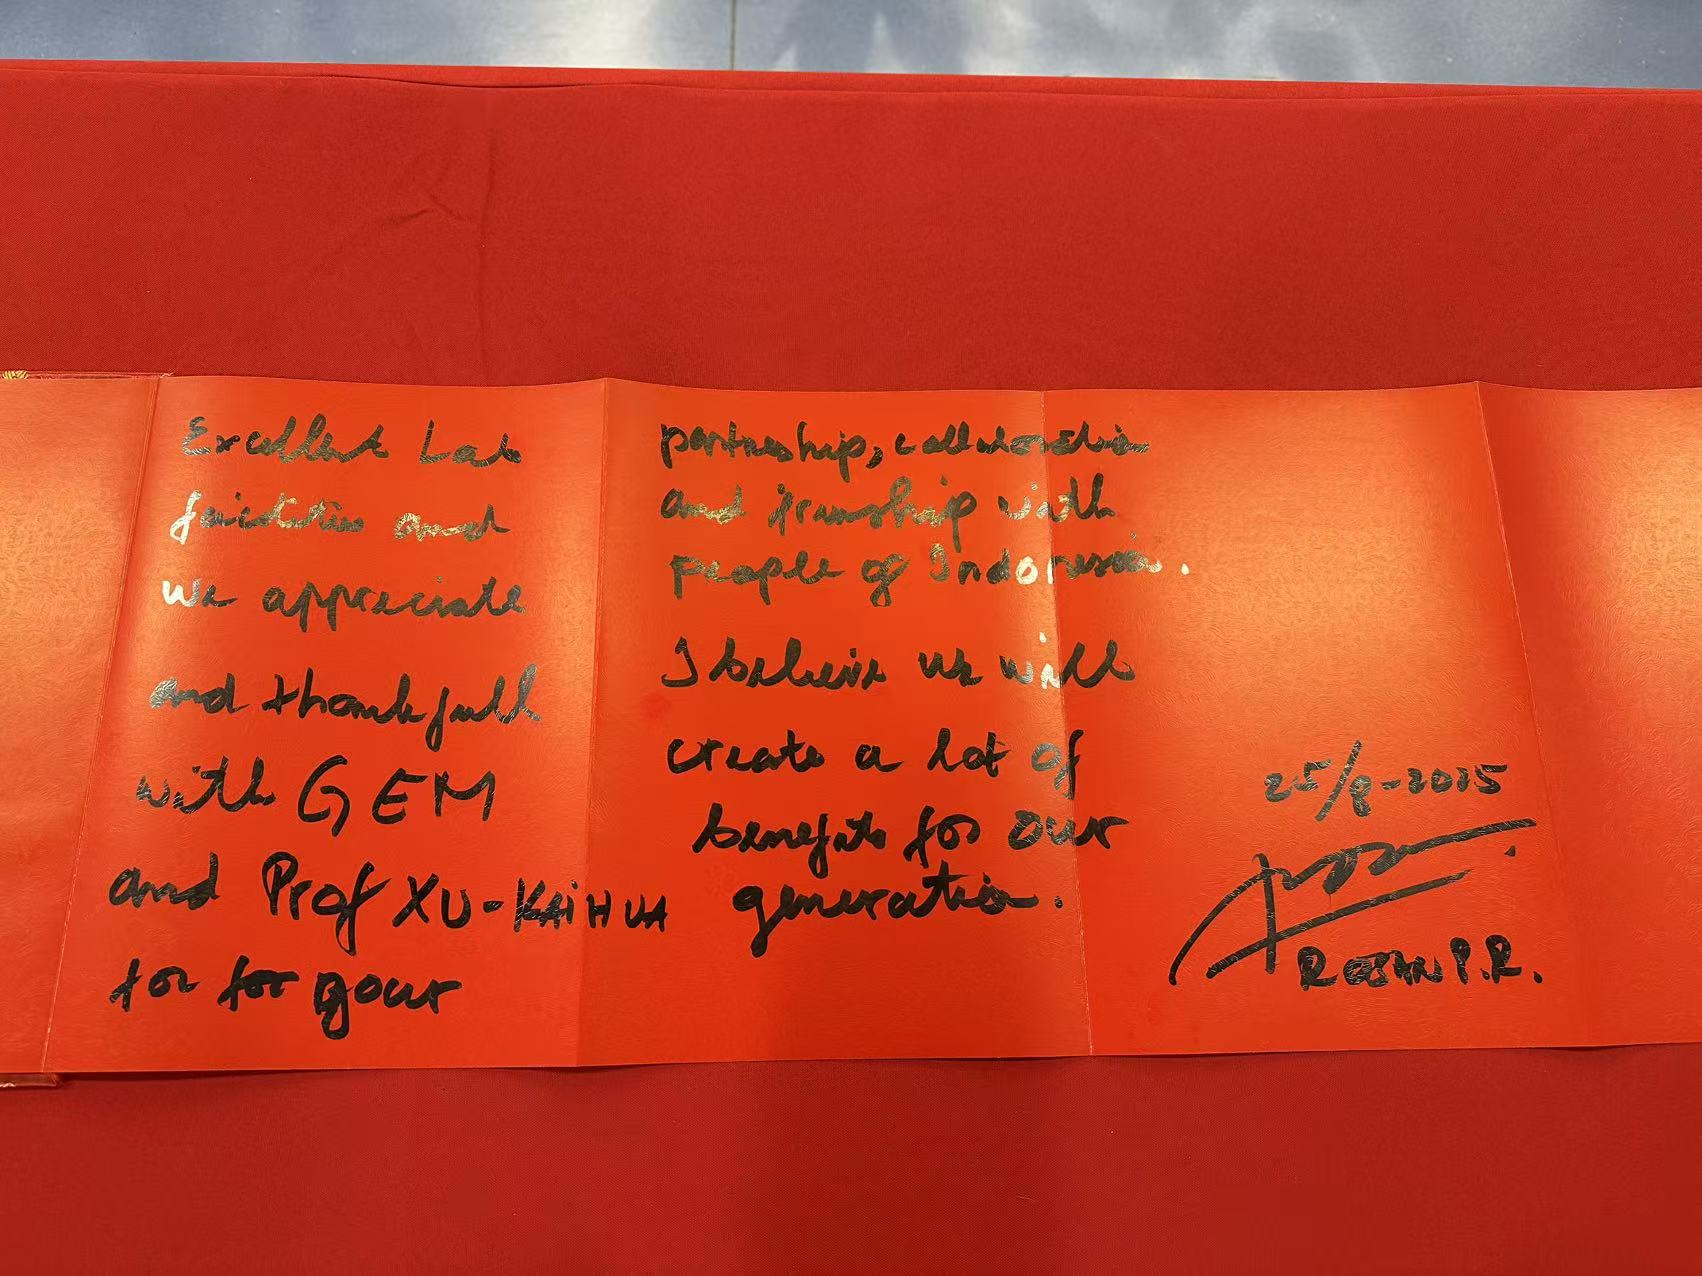 Excellent Lab
facilities and
we appreciate
and thankfull
with GEM
and Prof XU-KAIHUA
for for your
partnership, collaboration
and frienship with
people of Indonesia.
I believe we will
create a lot of
benefits for our
generation.
25/8-2025
ROSAN P.R.